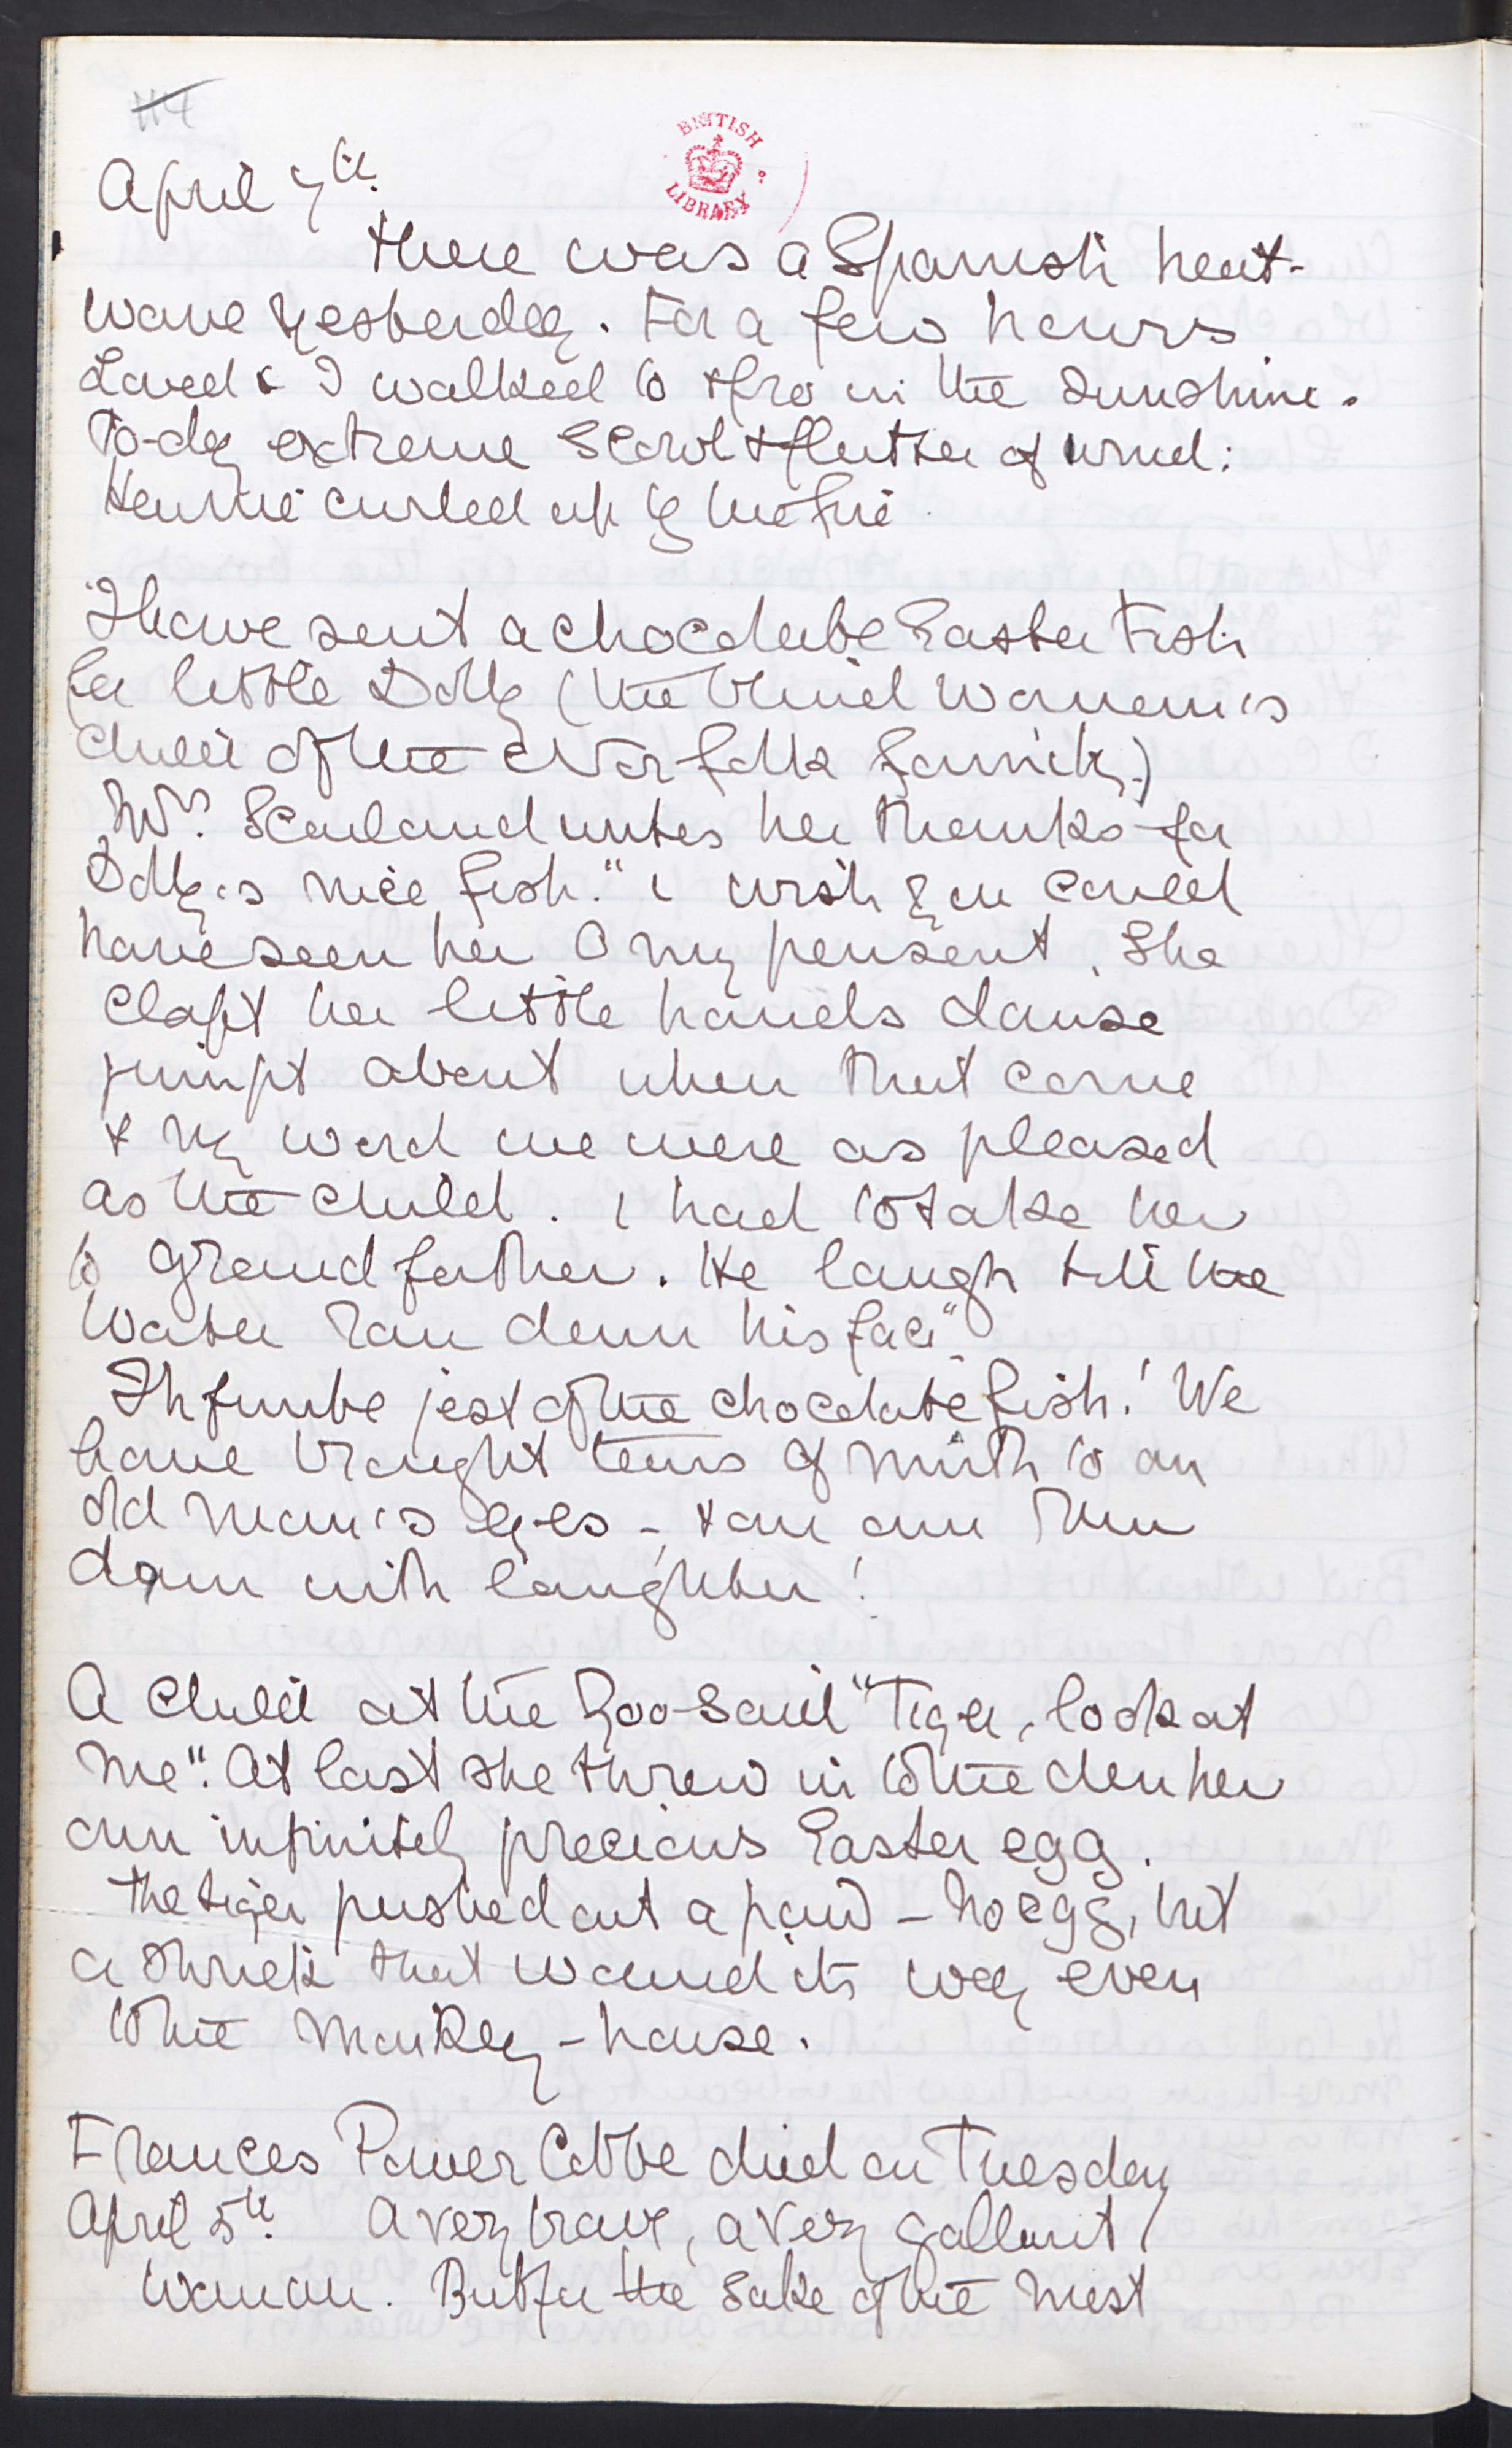 114
BRITISH
LIBRARY
April 7th.
There was a Spanish heat-
wave yesterday. For a few hours
Loved & I walked to & fro in the sunshine.
To-day extreme scowl & flutter of wind:
Hennie curled up by the fire.
I have sent a chocolate Easter Fish
for little Dolly (the blind woman's
child of the Norfolk family.)
Mrs. Scarland writes her thanks for
Dolly's nice fish. "I wish you could
have seen her O my pensent. She
clapt her little hands danse
jumpt about when that come
& my word we were as pleased
as the child. I had to take her
to grandfather. He laugh till the
water ran down his face"
Infinite jest of the chocolate fish! We
have brought tears of mirth to an
old man's eyes – & our own run
down with laughter!
A child at the Zoo said "Tiger, look at
me". At last she threw in to the den her
own infinitely precious Easter egg.
The tiger pushed out a paw – no egg, but
a shriek that wound its way even
to the Monkey-house.
Frances Power Cobbe died on Tuesday
April 5th. A very brave, a very gallant
woman. But for the sake of the most